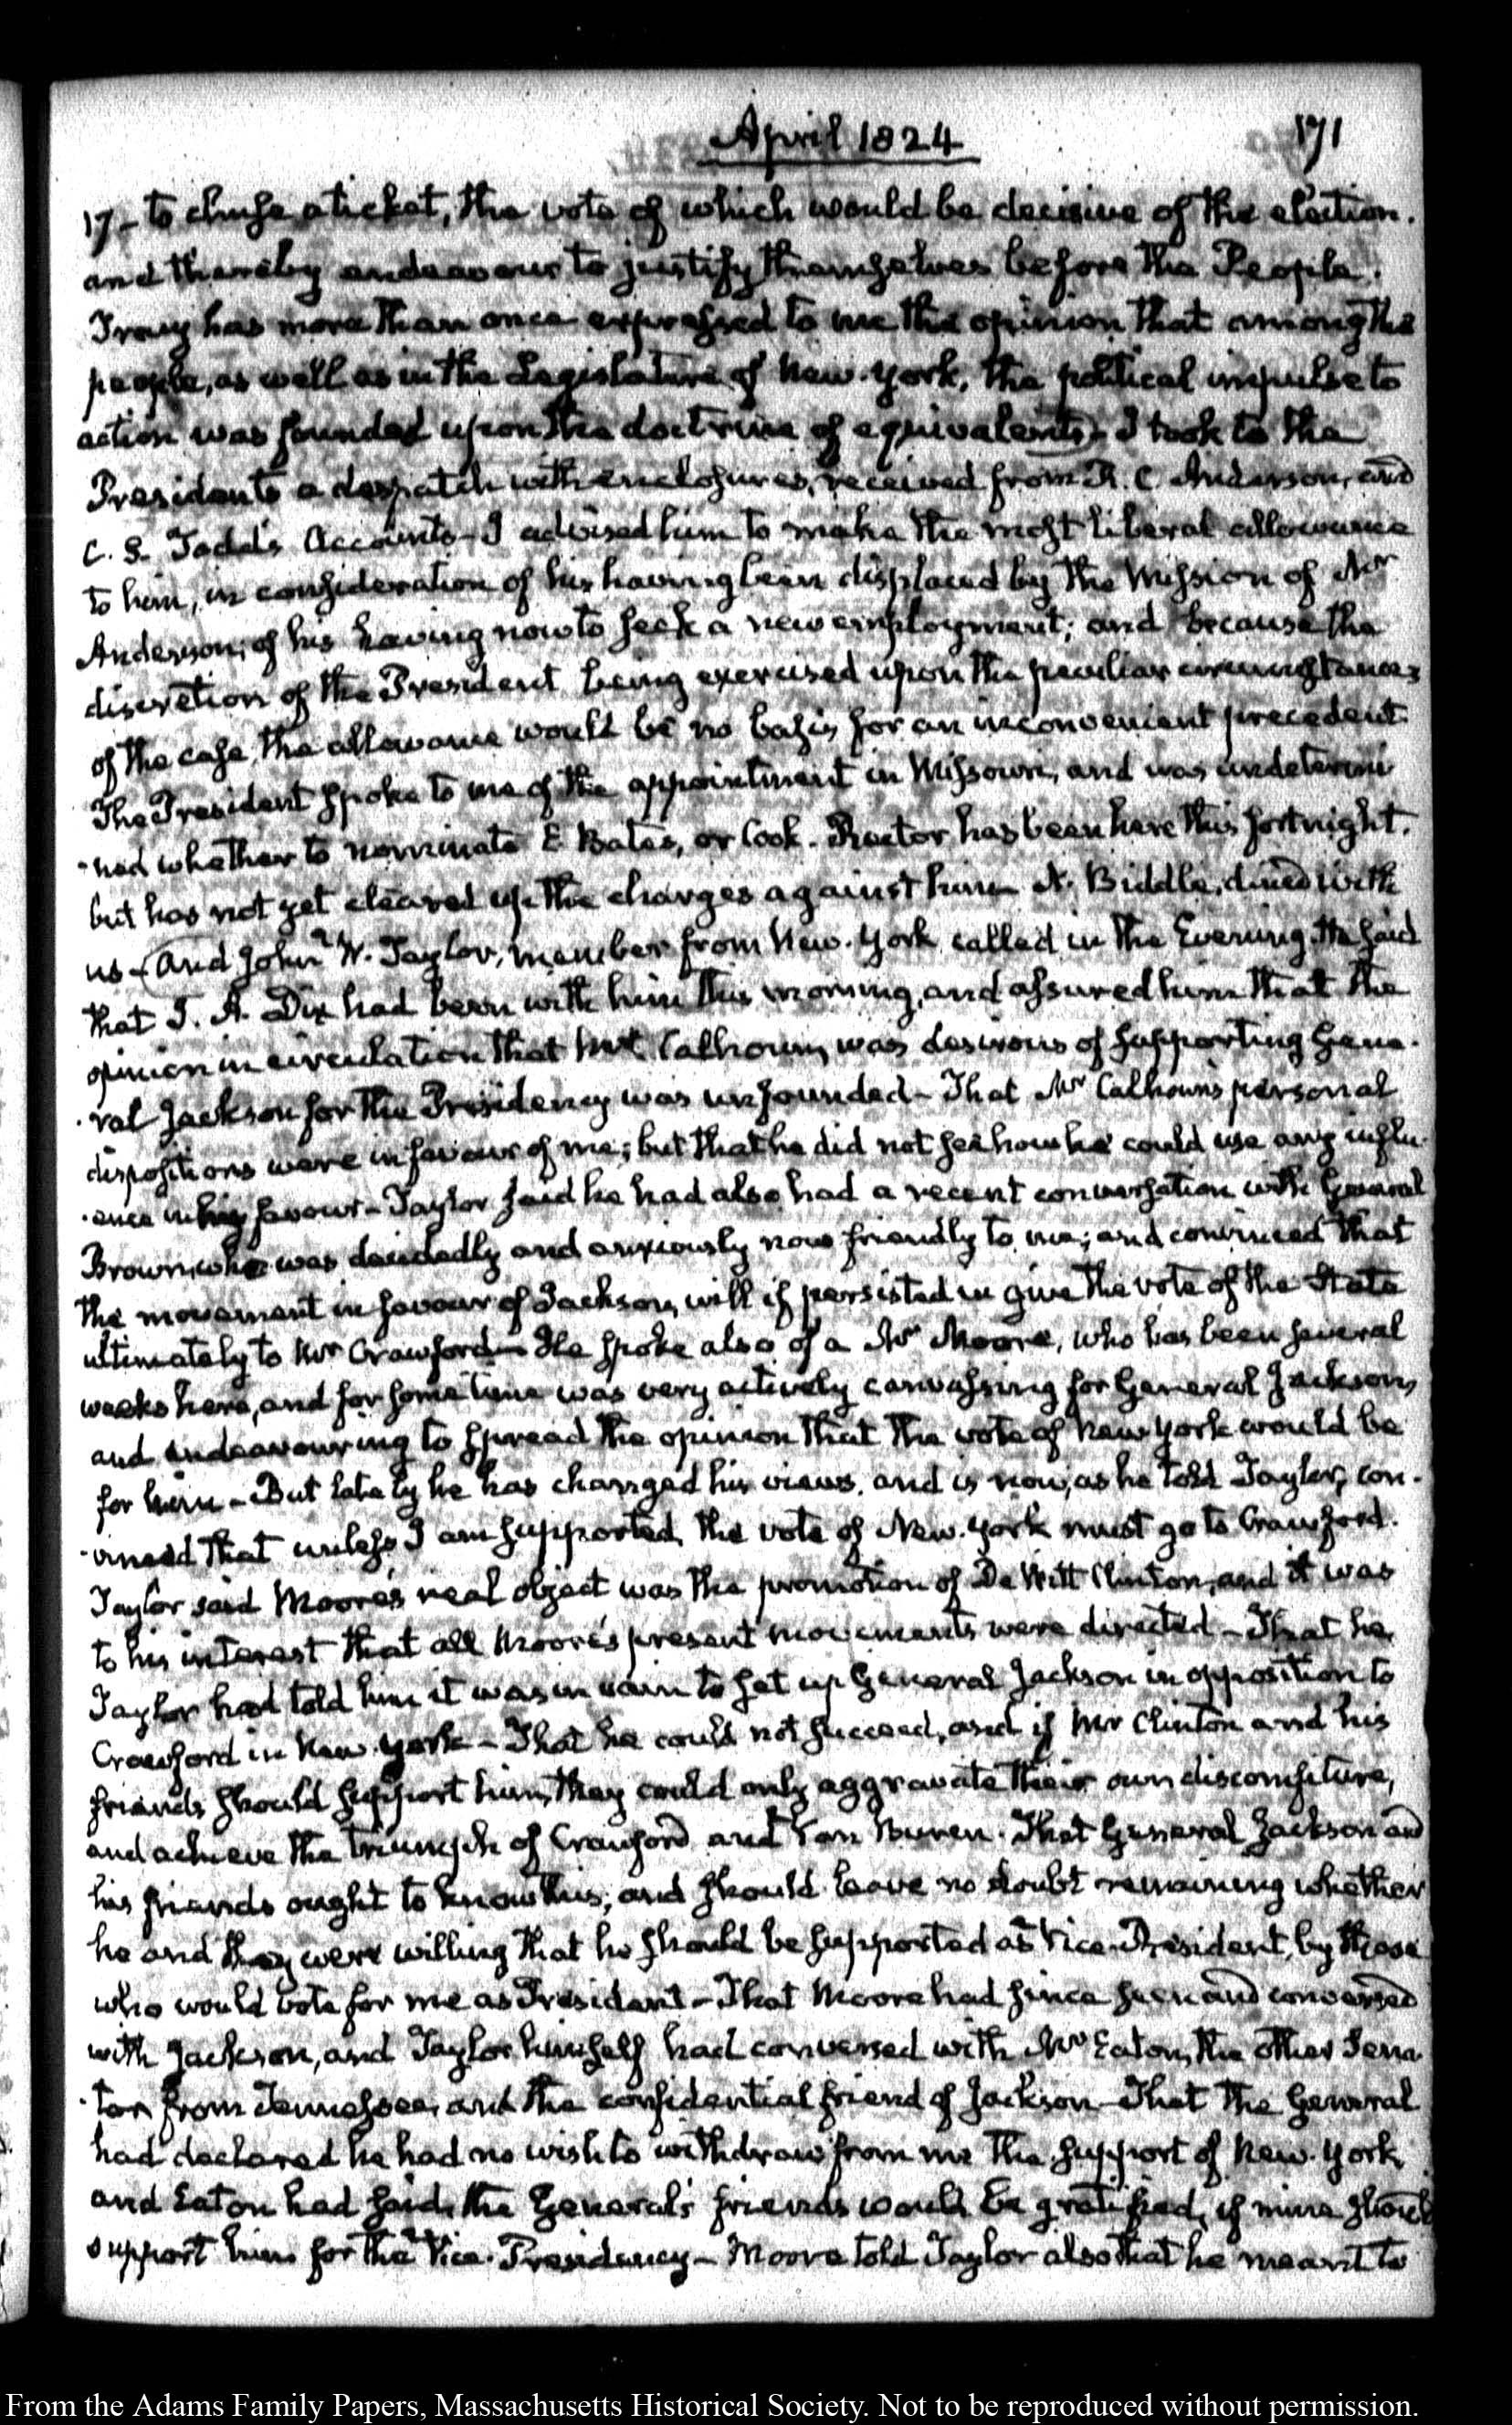 April 1824
171
17- to chuse a ticket, the vote of which would be decisive of the election.
and thereby endeavour to justify themselves before the People.
Tracy has more than once expressed to me the opinion that among the
people, as well as in the Legislature of New-York, the political impulse to
action was founded upon the doctrine of equivalents- I took to the
Presidents a despatch with enclosures, received from R. C. Anderson, and
C. S. Todd's Accounts- I advised him to make the most liberal allowance
to him, in consideration of his having been displaced by the Mission of Mr
Anderson; of his having now to seek a new employment; and because the
discretion of the President being exercised upon the peculiar circumstances
of the case, the allowance would be no basis for an inconvenient precedent.
The President spoke to me of the appointment in Missouri, and was undetermi
-ned whether to nominate E. Bates, or Cook. Rector has been here this fortnight.
but has not yet cleared up the charges against him- N. Biddle, dined with
us- And John W. Taylor, member from New-York called in the Evening. He said
that J. A. Dix had been with him this morning, and assured him that the
opinion in circulation that Mr Calhoun, was desirous of supporting Gene-
-ral Jackson for the Presidency was unfounded- That Mr Calhoun's personal
dispositions were in favour of me; but that he did not see how he could use any influ-
-ence in my favour- Taylor said he had also had a recent conversation with General
Brown, who was decidedly and anxiously now friendly to me; and convinced that
the movement in favour of Jackson, will if persisted in give the vote of the State
ultimately to Mr Crawford- He spoke also of a Mr Moore, who has been several
weeks here, and for some time was very actively canvassing for General Jackson,
and endeavouring to spread the opinion that the vote of New York would be
for him- But lately he has changed his views. and is now, as he told Taylor, con-
-vinced that unless I am supported, the vote of New-York must go to Crawford.
Taylor said Moore's real object was the promotion of De Witt Clinton, and it was
to his interest that all Moore's present movements were directed- That he
Taylor had told him it was in vain to set up General Jackson in opposition to
Crawford in New-York- That he could not succeed, and if Mr Clinton and his
friends should support him, they could only aggravate their own discomfiture,
and achieve the triumph of Crawford and Van Buren. That General Jackson and
his friends ought to know this; and should leave no doubt remaining whether
he and they were willing that he should be supported as Vice-President, by those
who would vote for me as President- That Moore had since seen and conversed
with Jackson, and Taylor himself had conversed with Mr Eaton, the other Sena
-tor from Tennessee, and the confidential friend of Jackson- That the General
had declared he had no wish to withdraw from me the support of New-York,
and Eaton had said, the General's friends would be gratified, if mine should
support him for the Vice-Presidency- Moore told Taylor also that he meant to
From the Adams Family Papers, Massachusetts Historical Society. Not to be reproduced without permission.